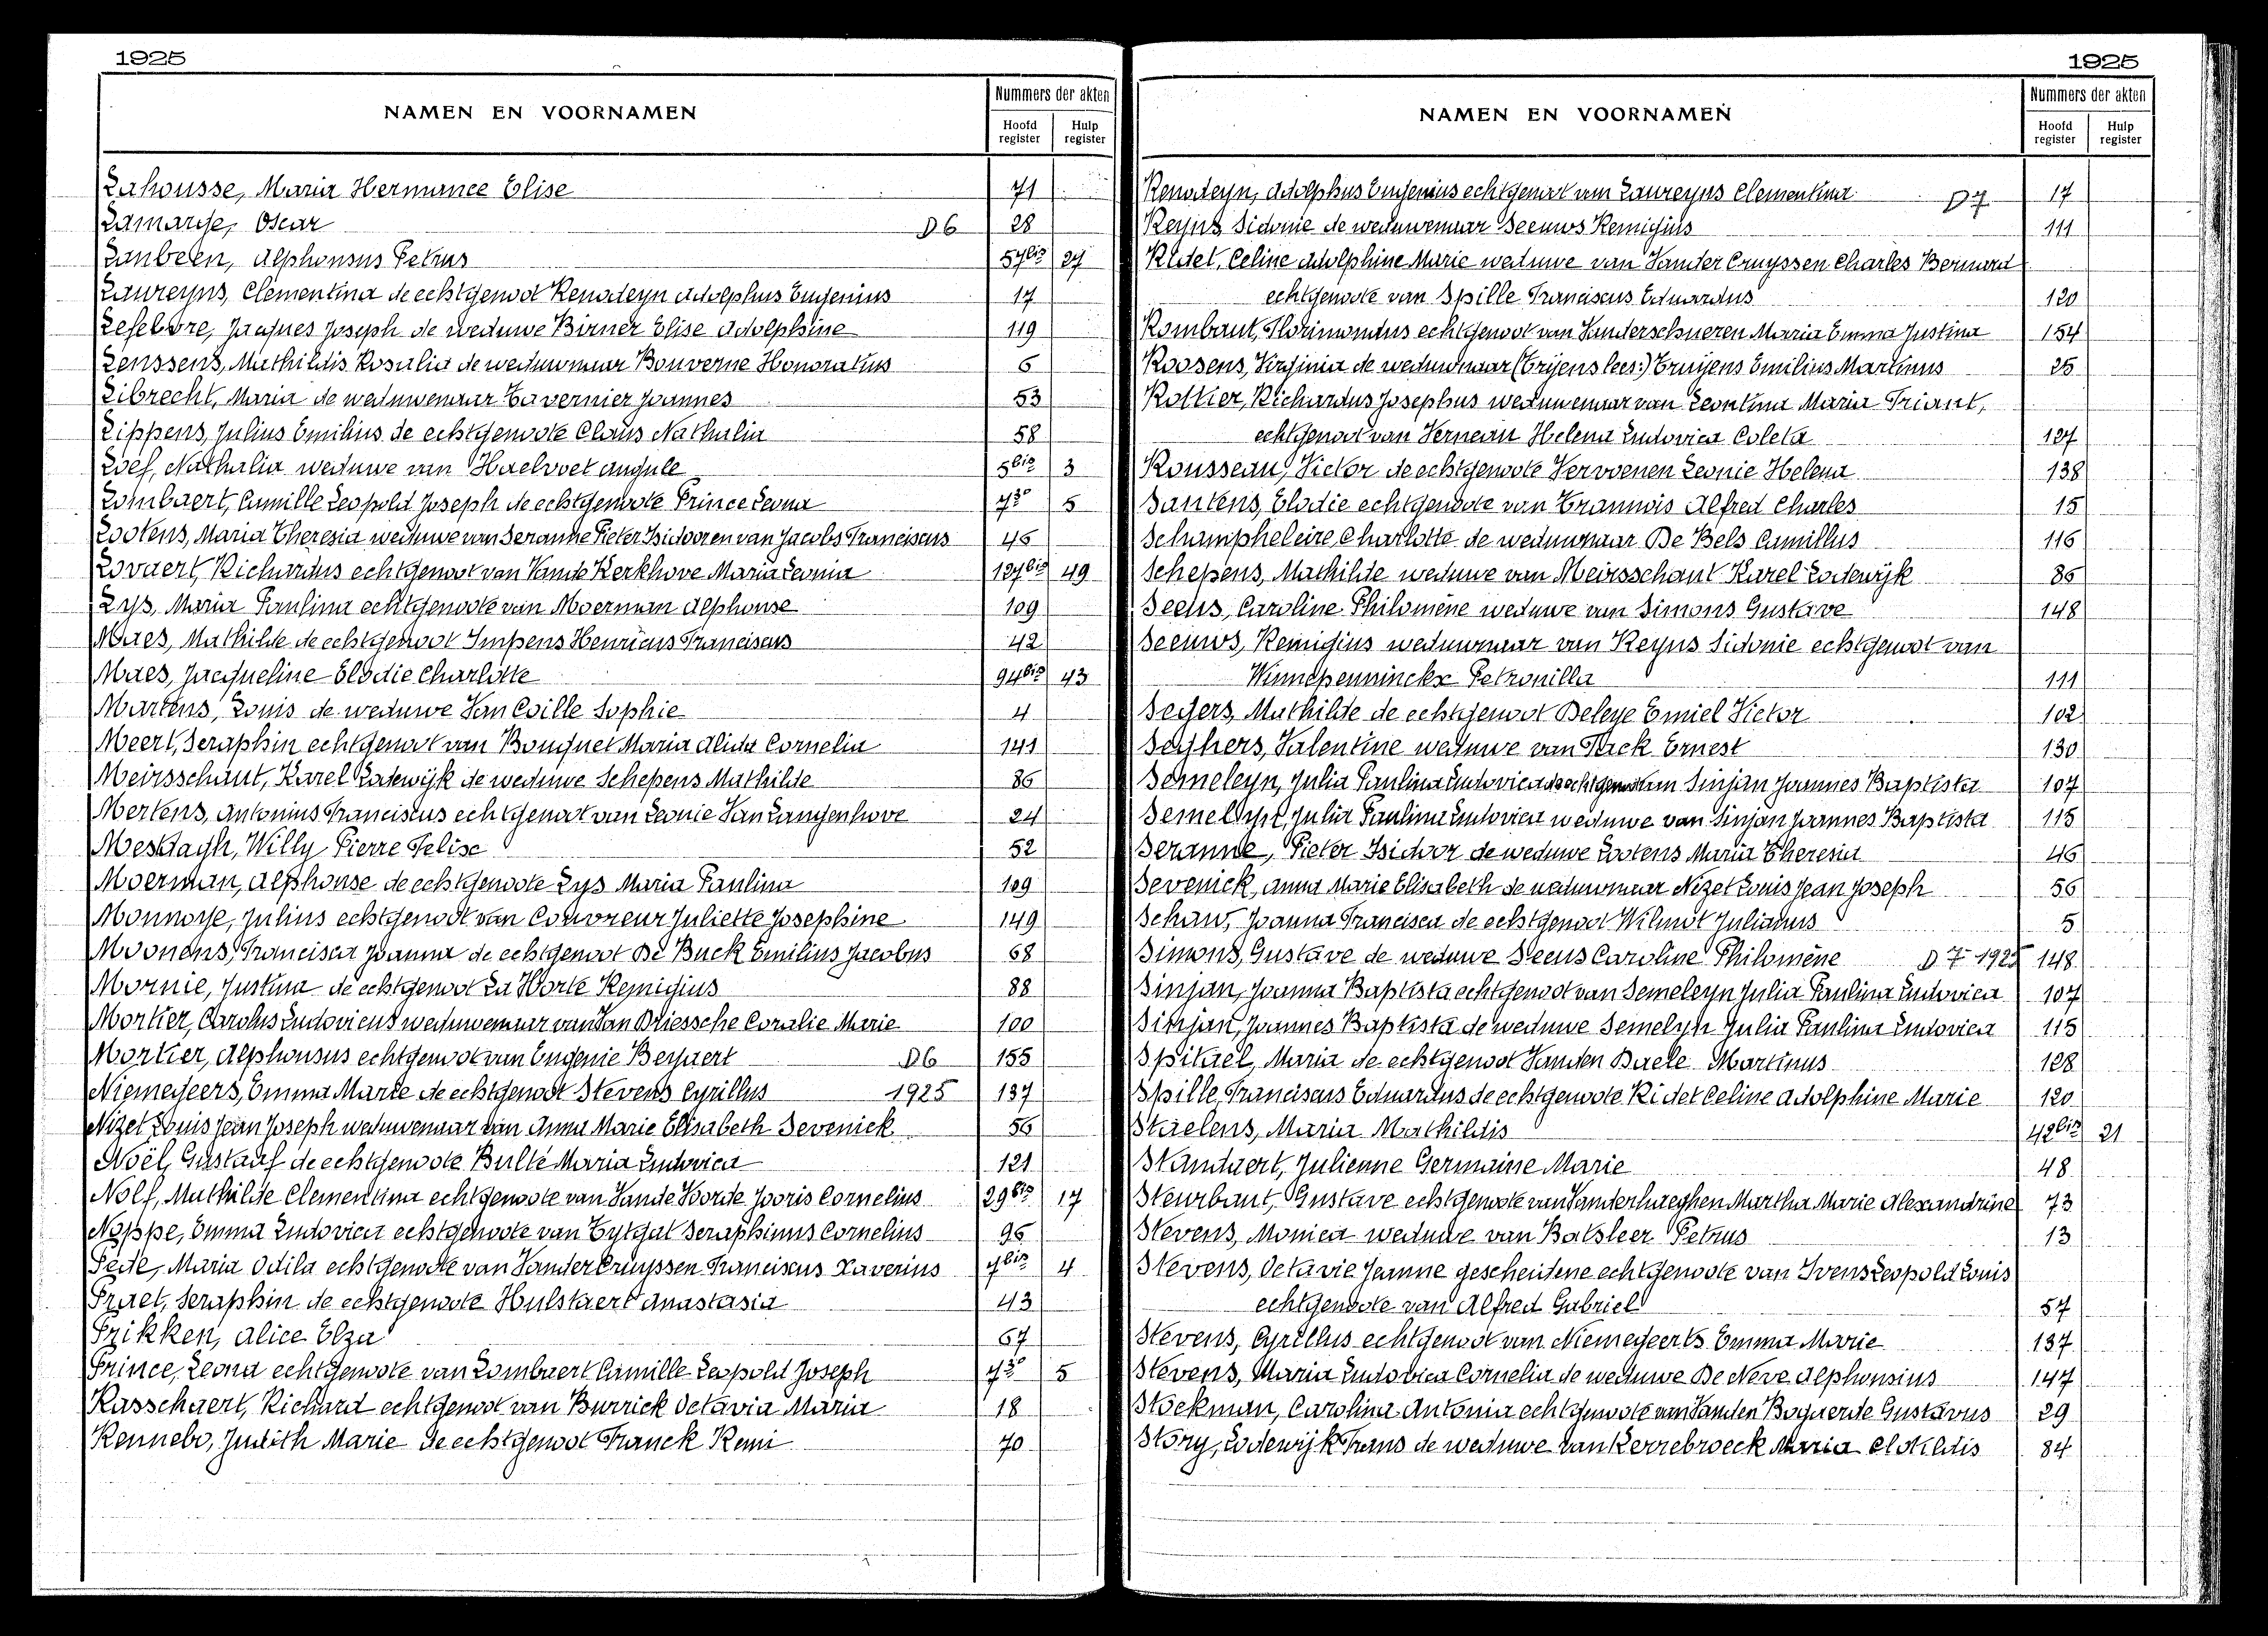 1925
NAMEN EN VOORNAMEN
Nummers der akten
Hoofd register
Hulp register
Lahousse, Maria Hermance Elise 71
Lamarge, Oscar D6 28
Lanbeen, Alphonsus Petrus 57bis 27
Laureyns, Clementina de echtgenoot Renodeyn Adolphus Eugenius 17
Lefebvre, Jacques Joseph de weduwe Birner Elise Adolphine 119
Lenssens, Mathildis Rosalia de weduwnaar Bonverne Honoratus 6
Librecht, Maria de weduwenaar Tavernier Joannes 53
Lippens, Julius Emilius de echtgenoote Claus Nathalia 58
Loef, Nathalia weduwe van Haelvoet Angule 5bis 3
Lombaert, Camille Leopold Joseph de echtgenoote Prince Leona 73° 5
Lootens, Maria Theresia weduwe van Seranne Pieter Isidoor en van Jacobs Franciscus 46
Lovaert, Richardus echtgenoot van Vande Kerkhove Maria Leonia 127bis 49
Lys, Maria Paulina echtgenoote van Moerman Alphonse 109
Maes, Mathilde de echtgenoot Impens Henricus Franciscus 42
Maes, Jacqueline Elodie Charlotte 94bis 43
Martens, Louis de weduwe Van Coille Sophie 4
Meert, Seraphin echtgenoot van Bouquet Maria Alida Cornelia 141
Meirsschaut, Karel Lodewijk de weduwe Schepens Mathilde 86
Mertens, Antonius Franciscus echtgenoot van Leonie Van Langenhove 24
Mesdagh, Willy Pierre Felise 52
Moerman, Alphonse de echtgenoote Lys Maria Paulina 109
Monnoye, Julius echtgenoot van Couvreur Juliette Josephine 149
Moonens, Francisca Joanna de echtgenoot De Buck Emilius Jacobus 68
Mornie, Justina de echtgenoot La Horte Remigius 88
Mortier, Carolus Ludovicus weduwenaar van Van Driessche Coralie Marie 100
Mortier, Alphonsus echtgenoot van Eugenie Beyaert D6 155
Niemegeers, Emma Marie de echtgenoot Stevens Cyrillus 1925 137
Nizet Louis Jean Joseph weduwenaar van Anna Marie Elisabeth Sevenick 56
Noël, Gustaaf de echtgenoote Bulté Maria Ludovica 121
Nolf, Mathilde Clementina echtgenoote van Vande Voorde Jooris Cornelius 29bis 17
Noppe, Emma Ludovica echtgenoote van Tytgat Seraphinus Cornelius 96
Pede, Maria Odila echtgenoote van Vander Cruyssen Franciscus Xaverius 7bis 4
Praet, Seraphin de echtgenoote Hulstaert Anastasia 43
Prikken, Alice Elza 67
Prince, Leona echtgenoote van Lombaert Camille Leopold Joseph 73° 5
Rasschaert, Richard echtgenoot van Burrick Octavia Maria 18
Rennebo, Judith Marie de echtgenoot Franck Remi 70
1925
NAMEN EN VOORNAMEN
Nummers der akten
Hoofd register
Hulp register
Renodeyn, Adolphus Eugenius echtgenoot van Laureyns Clementina D7 17
Reyns, Sidonie de weduwenaar Seeuws Remigius 111
Ridet, Celine Adolphine Marie weduwe van Vander Cruyssen Charles Bernard
echtgenoote van Spille Franciscus Eduardus 120
Rombaut, Florimondus echtgenoot van Vanderschueren Maria Emma Justina 154
Roosens, Virginia de weduwnaar (Trijens lees:) Truijens Emilius Martinus 25
Rottier, Richardus Josephus weduwenaar van Leontina Maria Triant,
echtgenoot van Verneau Helena Ludovica Coleta 127
Rousseau, Victor de echtgenoote Vervoenen Leonie Helena 138
Santens, Elodie echtgenoote van Trannois Alfred Charles 15
Schampheleire, Charlotte de weduwnaar De Bels Camillus 116
Schepens, Mathilde weduwe van Meirsschaut Karel Lodewijk 86
Seeus, Caroline Philomène weduwe van Simons Gustave 148
Seeuws, Remigius weduwnaar van Reyns Sidonie echtgenoot van
Winnepenninckx Petronilla 111
Segers, Mathilde de echtgenoot Deleye Emiel Victor 102
Seghers, Valentine weduwe van Tack Ernest 130
Semeleyn, Julia Paulina Ludovica de echtgenoot van Sinjan Joannes Baptista 107
Semelyn, Julia Paulina Ludovica weduwe van Sinjan Joannes Baptista 115
Seranne, Pieter Isidoor de weduwe Lootens Maria Theresia 46
Sevenick, Anna Marie Elisabeth de weduwnaar Nizet Louis Jean Joseph 56
Schaw, Joanna Francisca de echtgenoot Wilmot Julianus 5
Simons, Gustave de weduwe Seeus Caroline Philomène D 7 1925 148
Sinjan, Joanna Baptista echtgenoot van Semeleyn Julia Paulina Ludovica 107
Sinjan, Joannes Baptista de weduwe Semelyn Julia Paulina Ludovica 115
Spitael, Maria de echtgenoot Vanden Baele Martinus 128
Spille, Franciscus Eduardus de echtgenoote Ridet Celine Adolphine Marie 120
Staelens, Maria Mathildis 42bis 21
Standaert, Julienne Germaine Marie 48
Steurbaut, Gustave echtgenoote van Vanderhaeghen Martha Marie Alexandrine 73
Stevens, Monica weduwe van Batsleer Petrus 13
Stevens, Octavie Jeanne gescheidene echtgenoote van Ivens Leopold Louis
echtgenoote van Alfred Gabriel 57
Stevens, Cyrillus echtgenoot van Niemegeerts Emma Marie 137
Stevens, Maria Ludovica Cornelia de weduwe De Neve Alphonsius 147
Stockman, Carolina Antonia echtgenoote van Vanden Bogaerde Gustavus 29
Story, Lodewijk Frans de weduwe Van Kerrebroeck Maria Clotildis 84